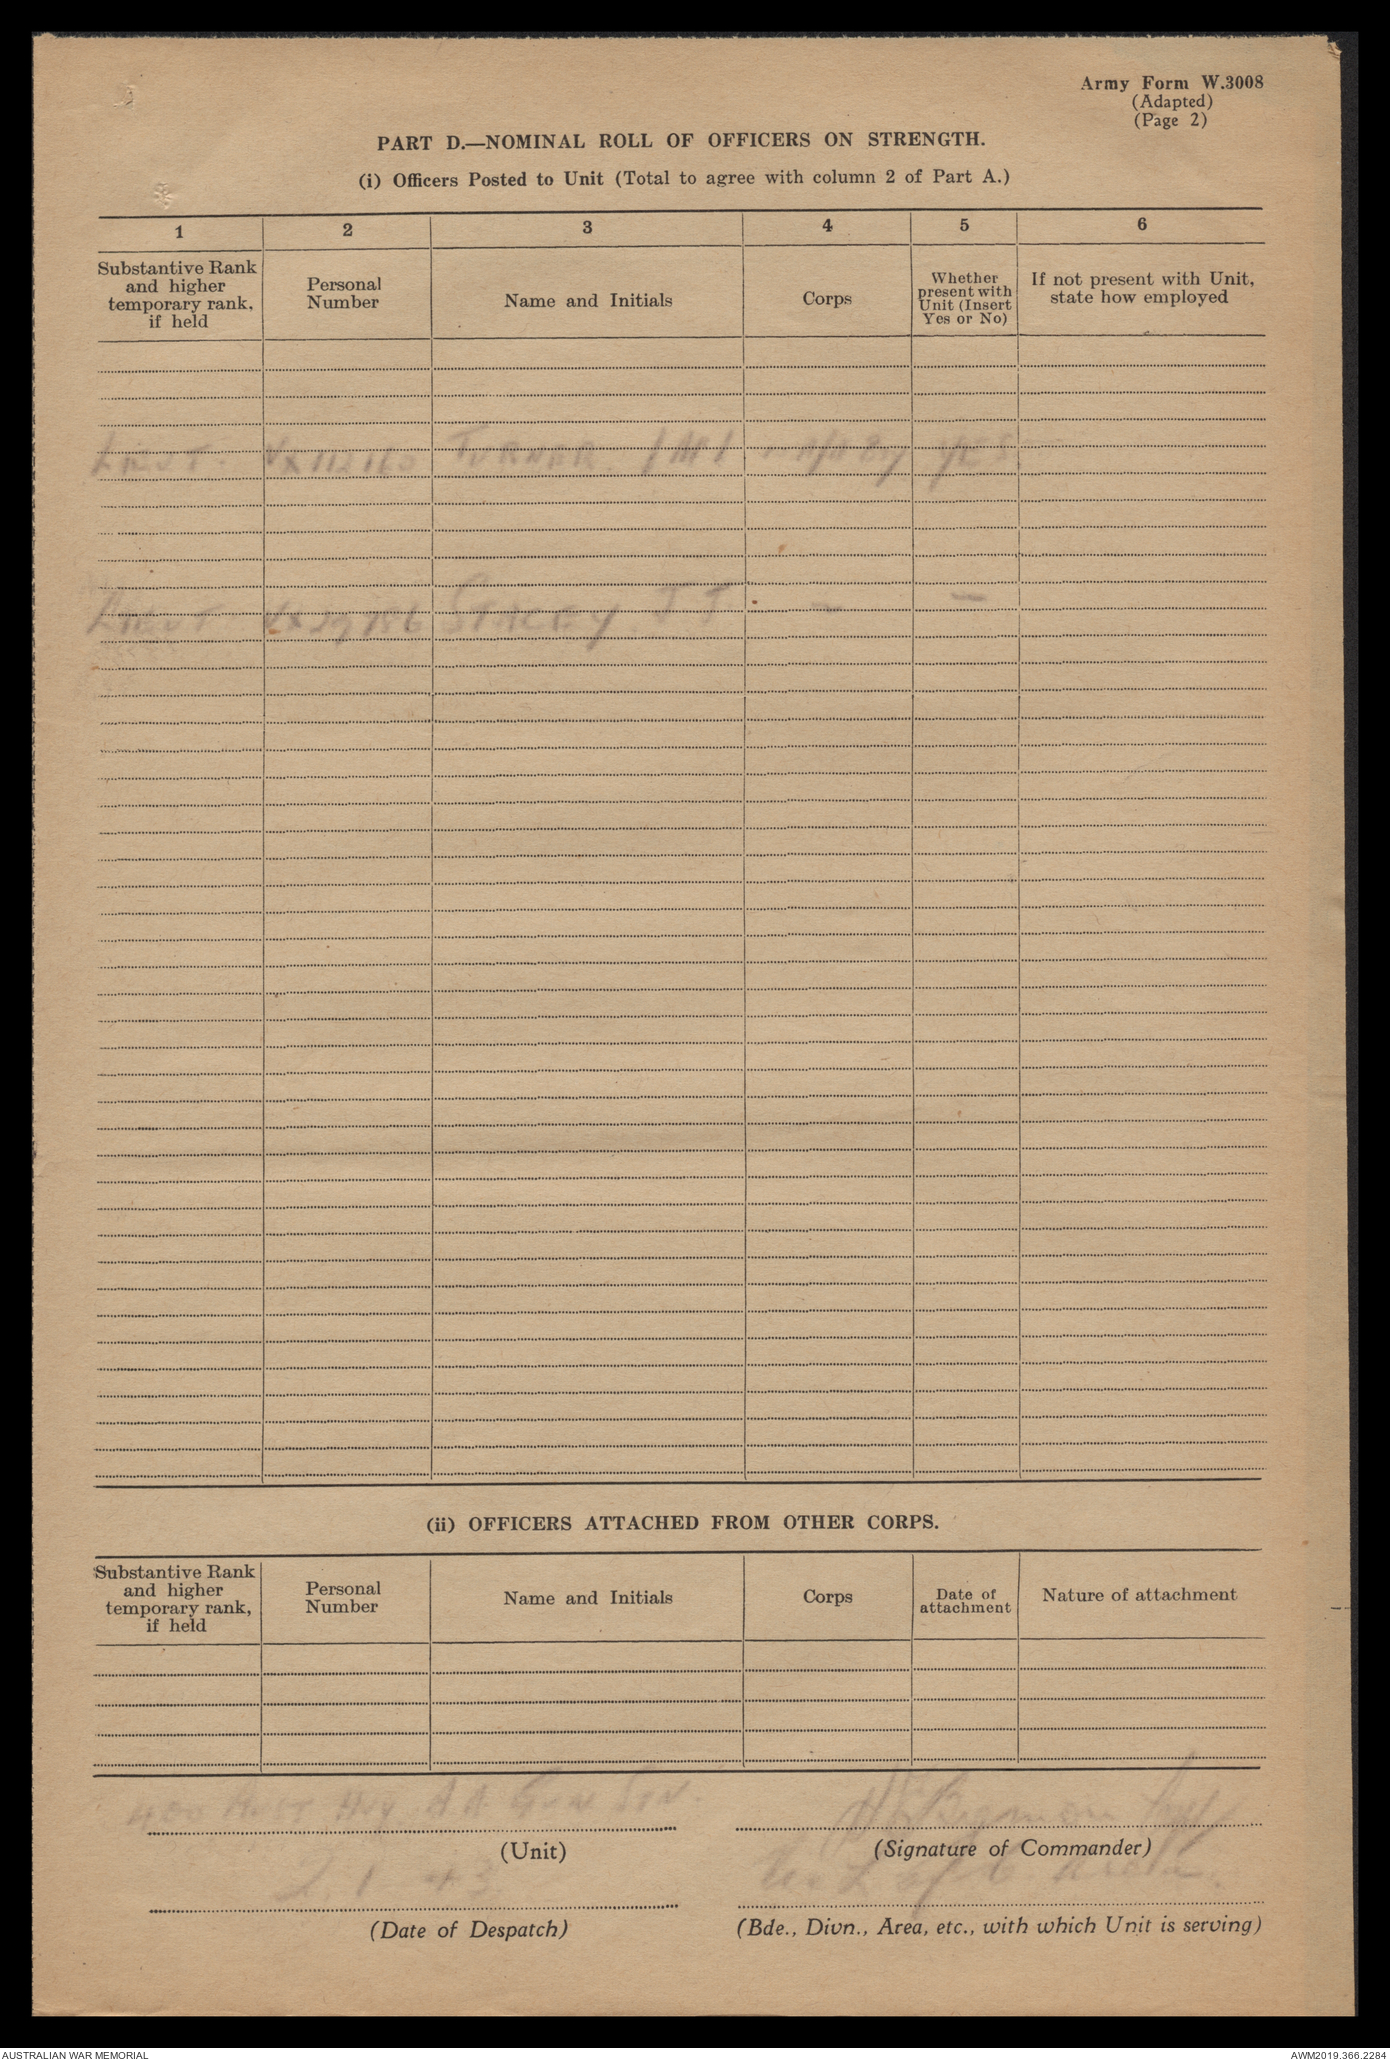 Army Form W.3008
(Adapted)
(Page 2)
PART D.—NOMINAL ROLL OF OFFICERS ON STRENGTH.
(i) Officers Posted to Unit (Total to agree with column 2 of Part A.)
1 2 3 4 5 6
Substantive Rank and higher temporary rank, if held
Personal Number
Name and Initials
Corps
Whether present with Unit (Insert Yes or No)
If not present with Unit, state how employed
LIEUT. TURNER YES
LIEUT STACEY J J – –
(ii) OFFICERS ATTACHED FROM OTHER CORPS.
Substantive Rank and higher temporary rank, if held
Personal Number
Name and Initials
Corps
Date of attachment
Nature of attachment
AUST HVY AA GUN STN.
(Unit)
(Signature of Commander)
2. 1 43
L of C
(Date of Despatch)
(Bde., Divn., Area, etc., with which Unit is serving)
AUSTRALIAN WAR MEMORIAL
AWM2019.366.2284